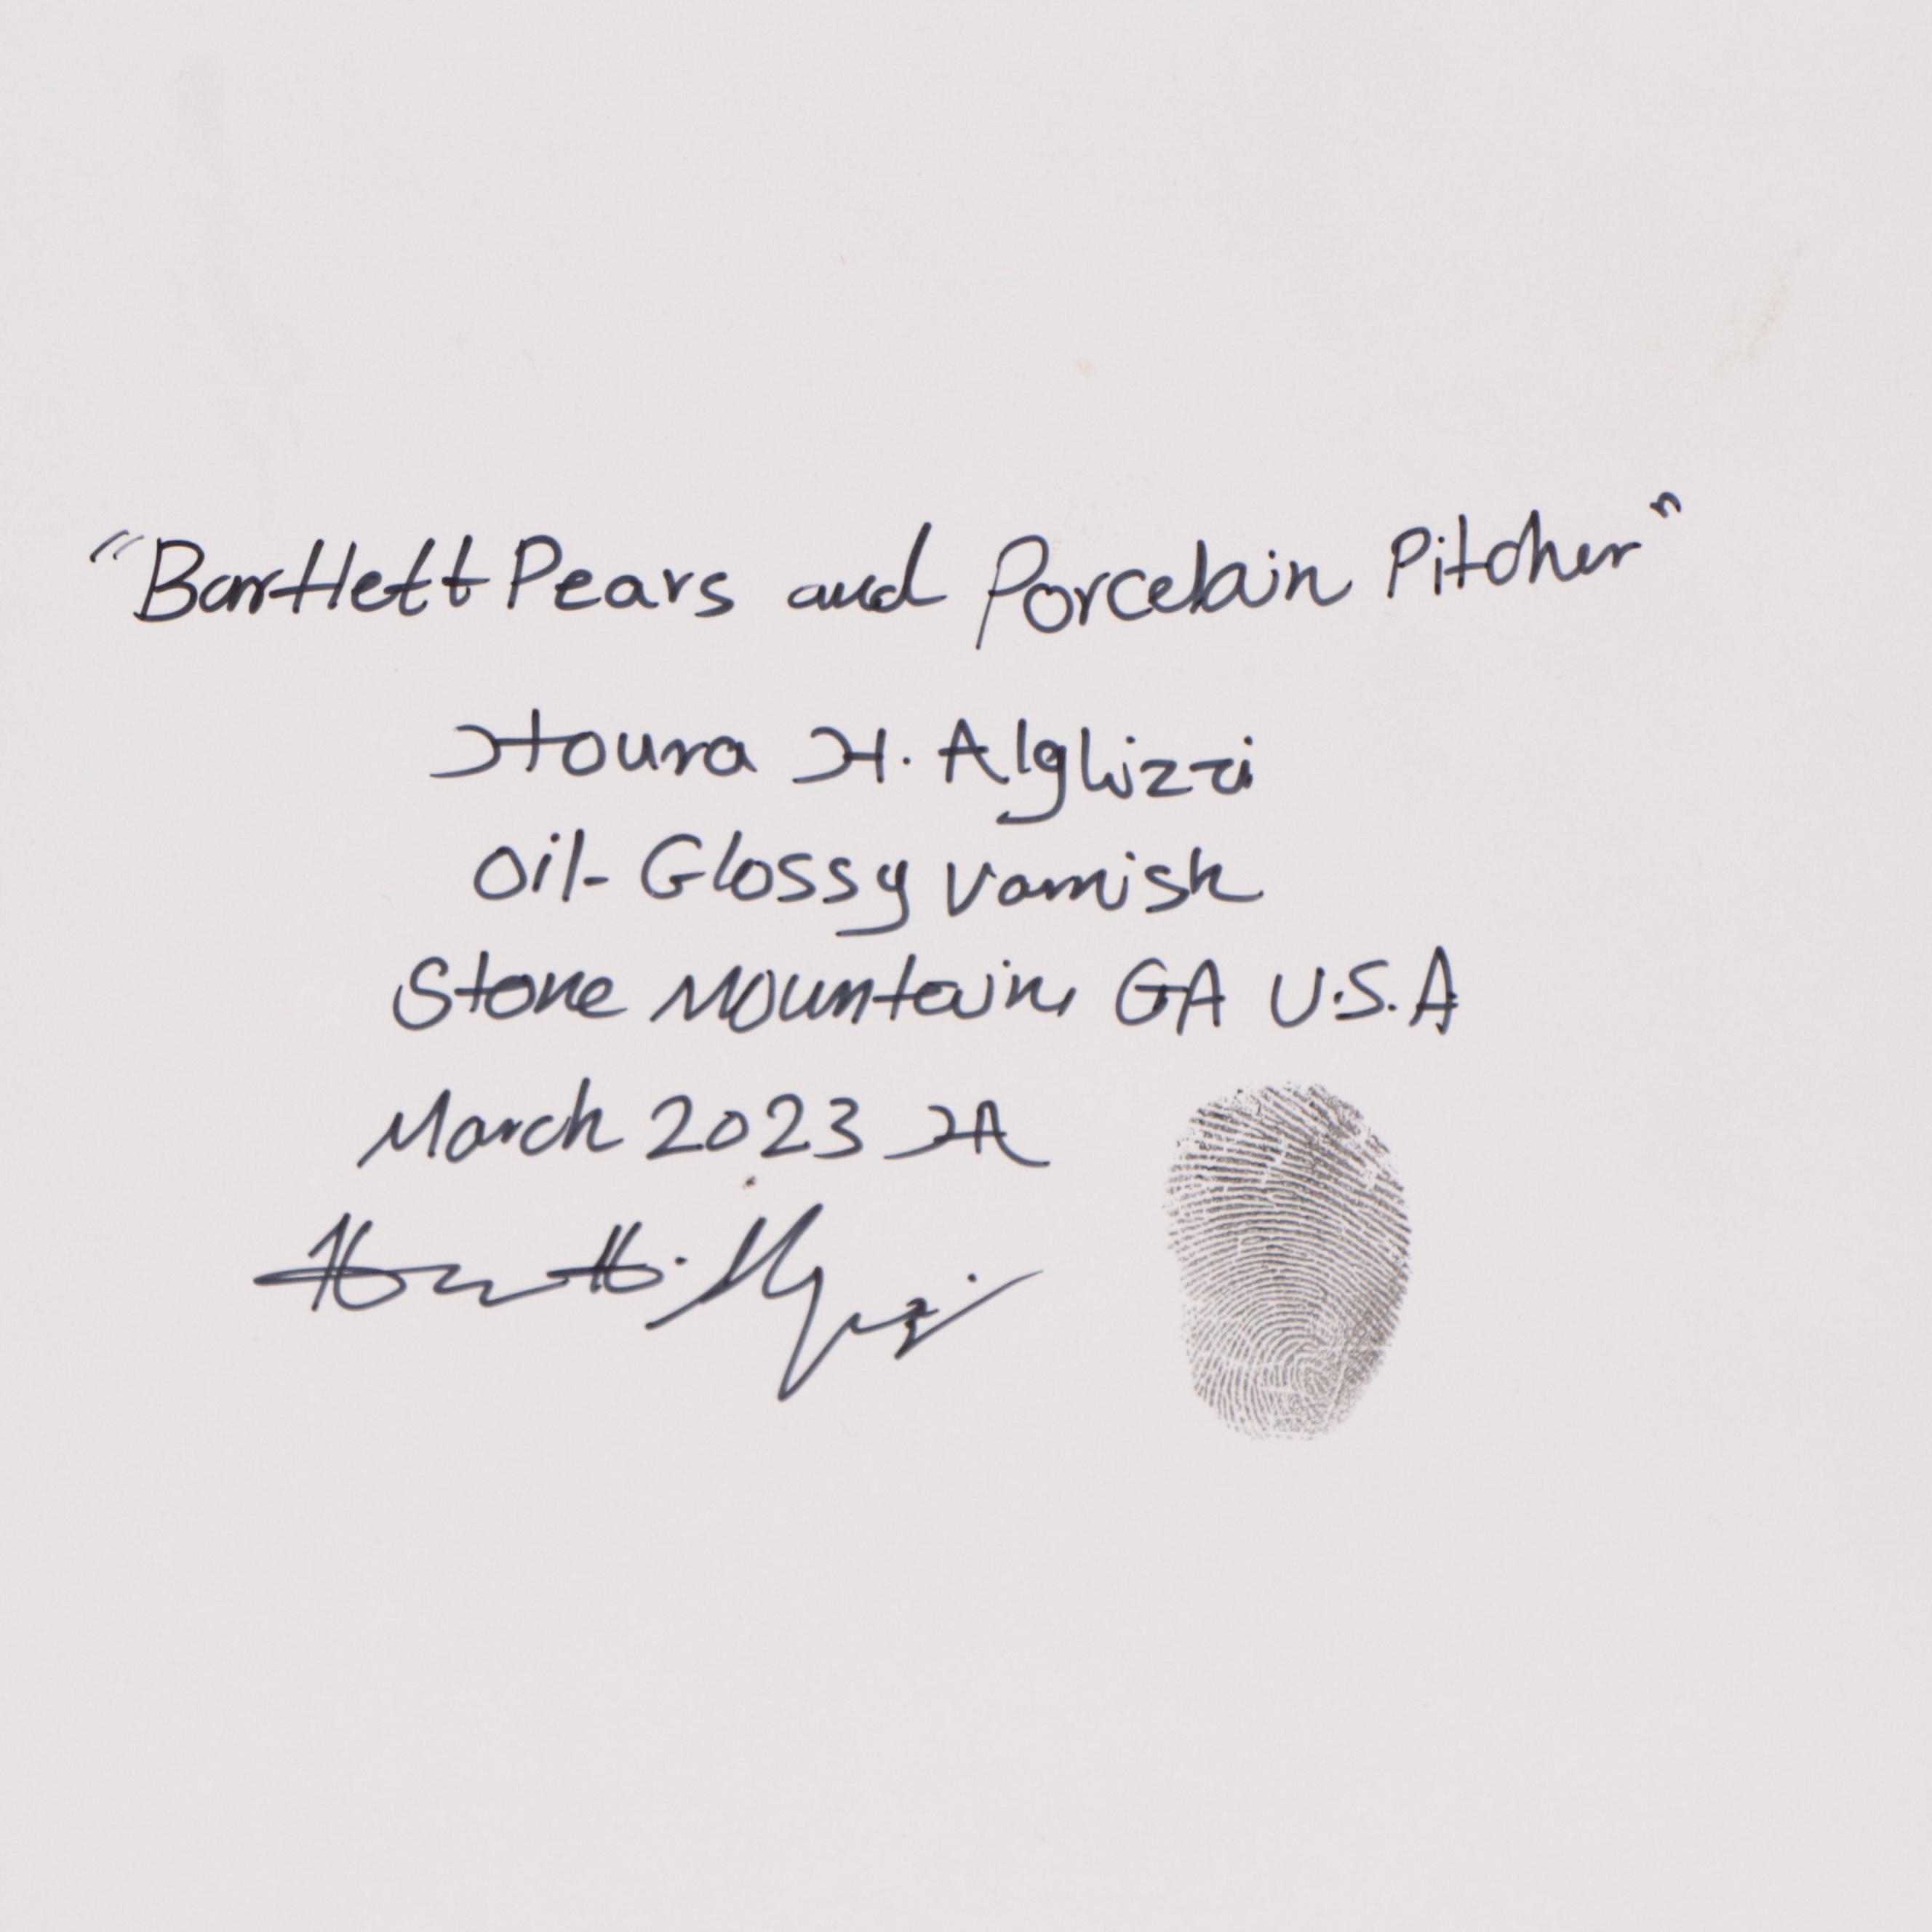 "Bartlett Pears and Porcelain Pitcher"
Houra H. Alghizzi
Oil- Glossy Varnish
Stone Mountain, GA U.S.A
March 2023 HA